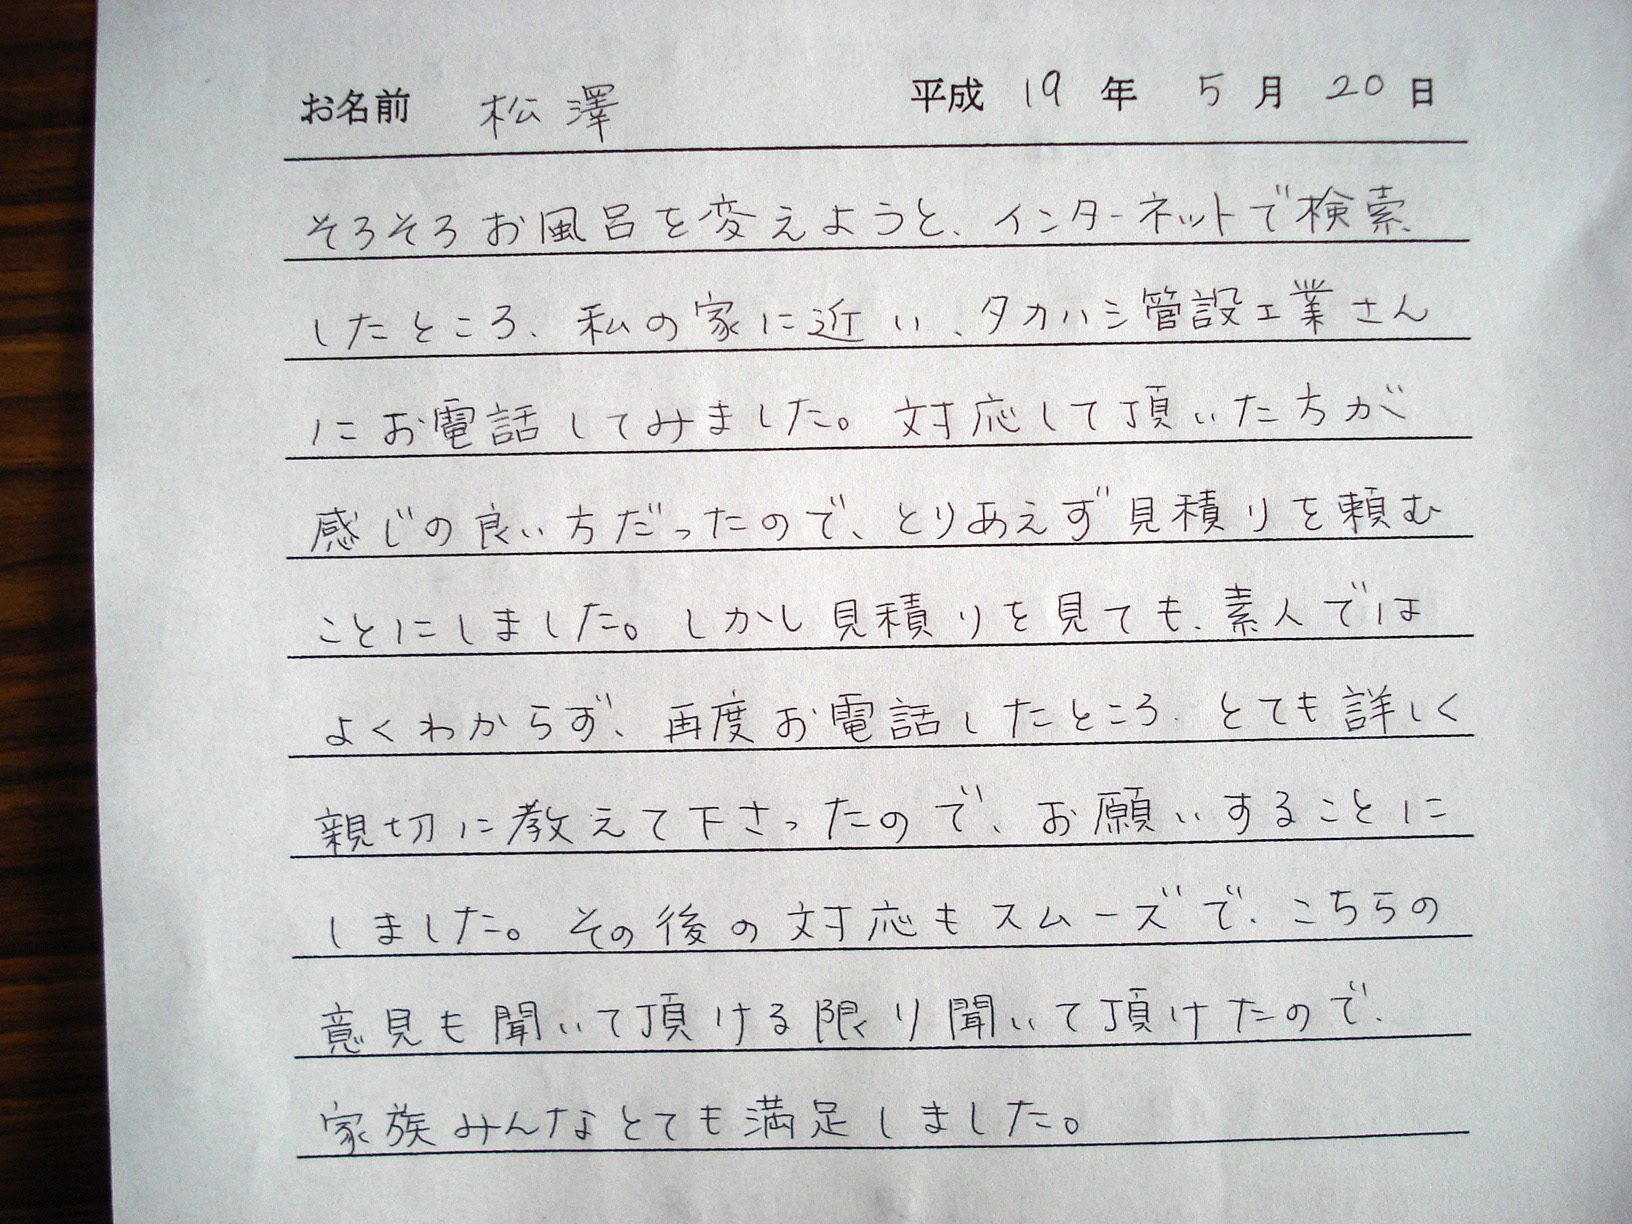 お名前 松澤 平成 19 年 5 月 20 日
そろそろお風呂を変えようと、インターネットで検索
したところ、私の家に近い、タカハシ管設工業さん
にお電話してみました。対応して頂いた方が
感じの良い方だったので、とりあえず見積りを頼む
ことにしました。しかし見積りを見ても、素人では
よくわからず、再度お電話したところ、とても詳しく
親切に教えて下さったので、お願いすることに
しました。その後の対応もスムーズで、こちらの
意見も聞いて頂ける限り聞いて頂けたので、
家族みんなとても満足しました。